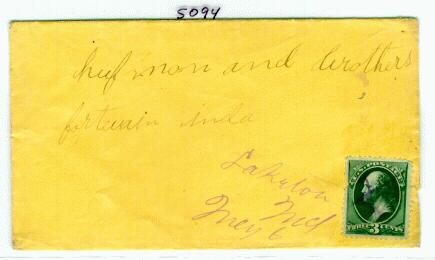 5094
hufmon and brothers
fortwain inda
Laketon
Ind
U.S. POSTAGE
THREE 3 CENTS